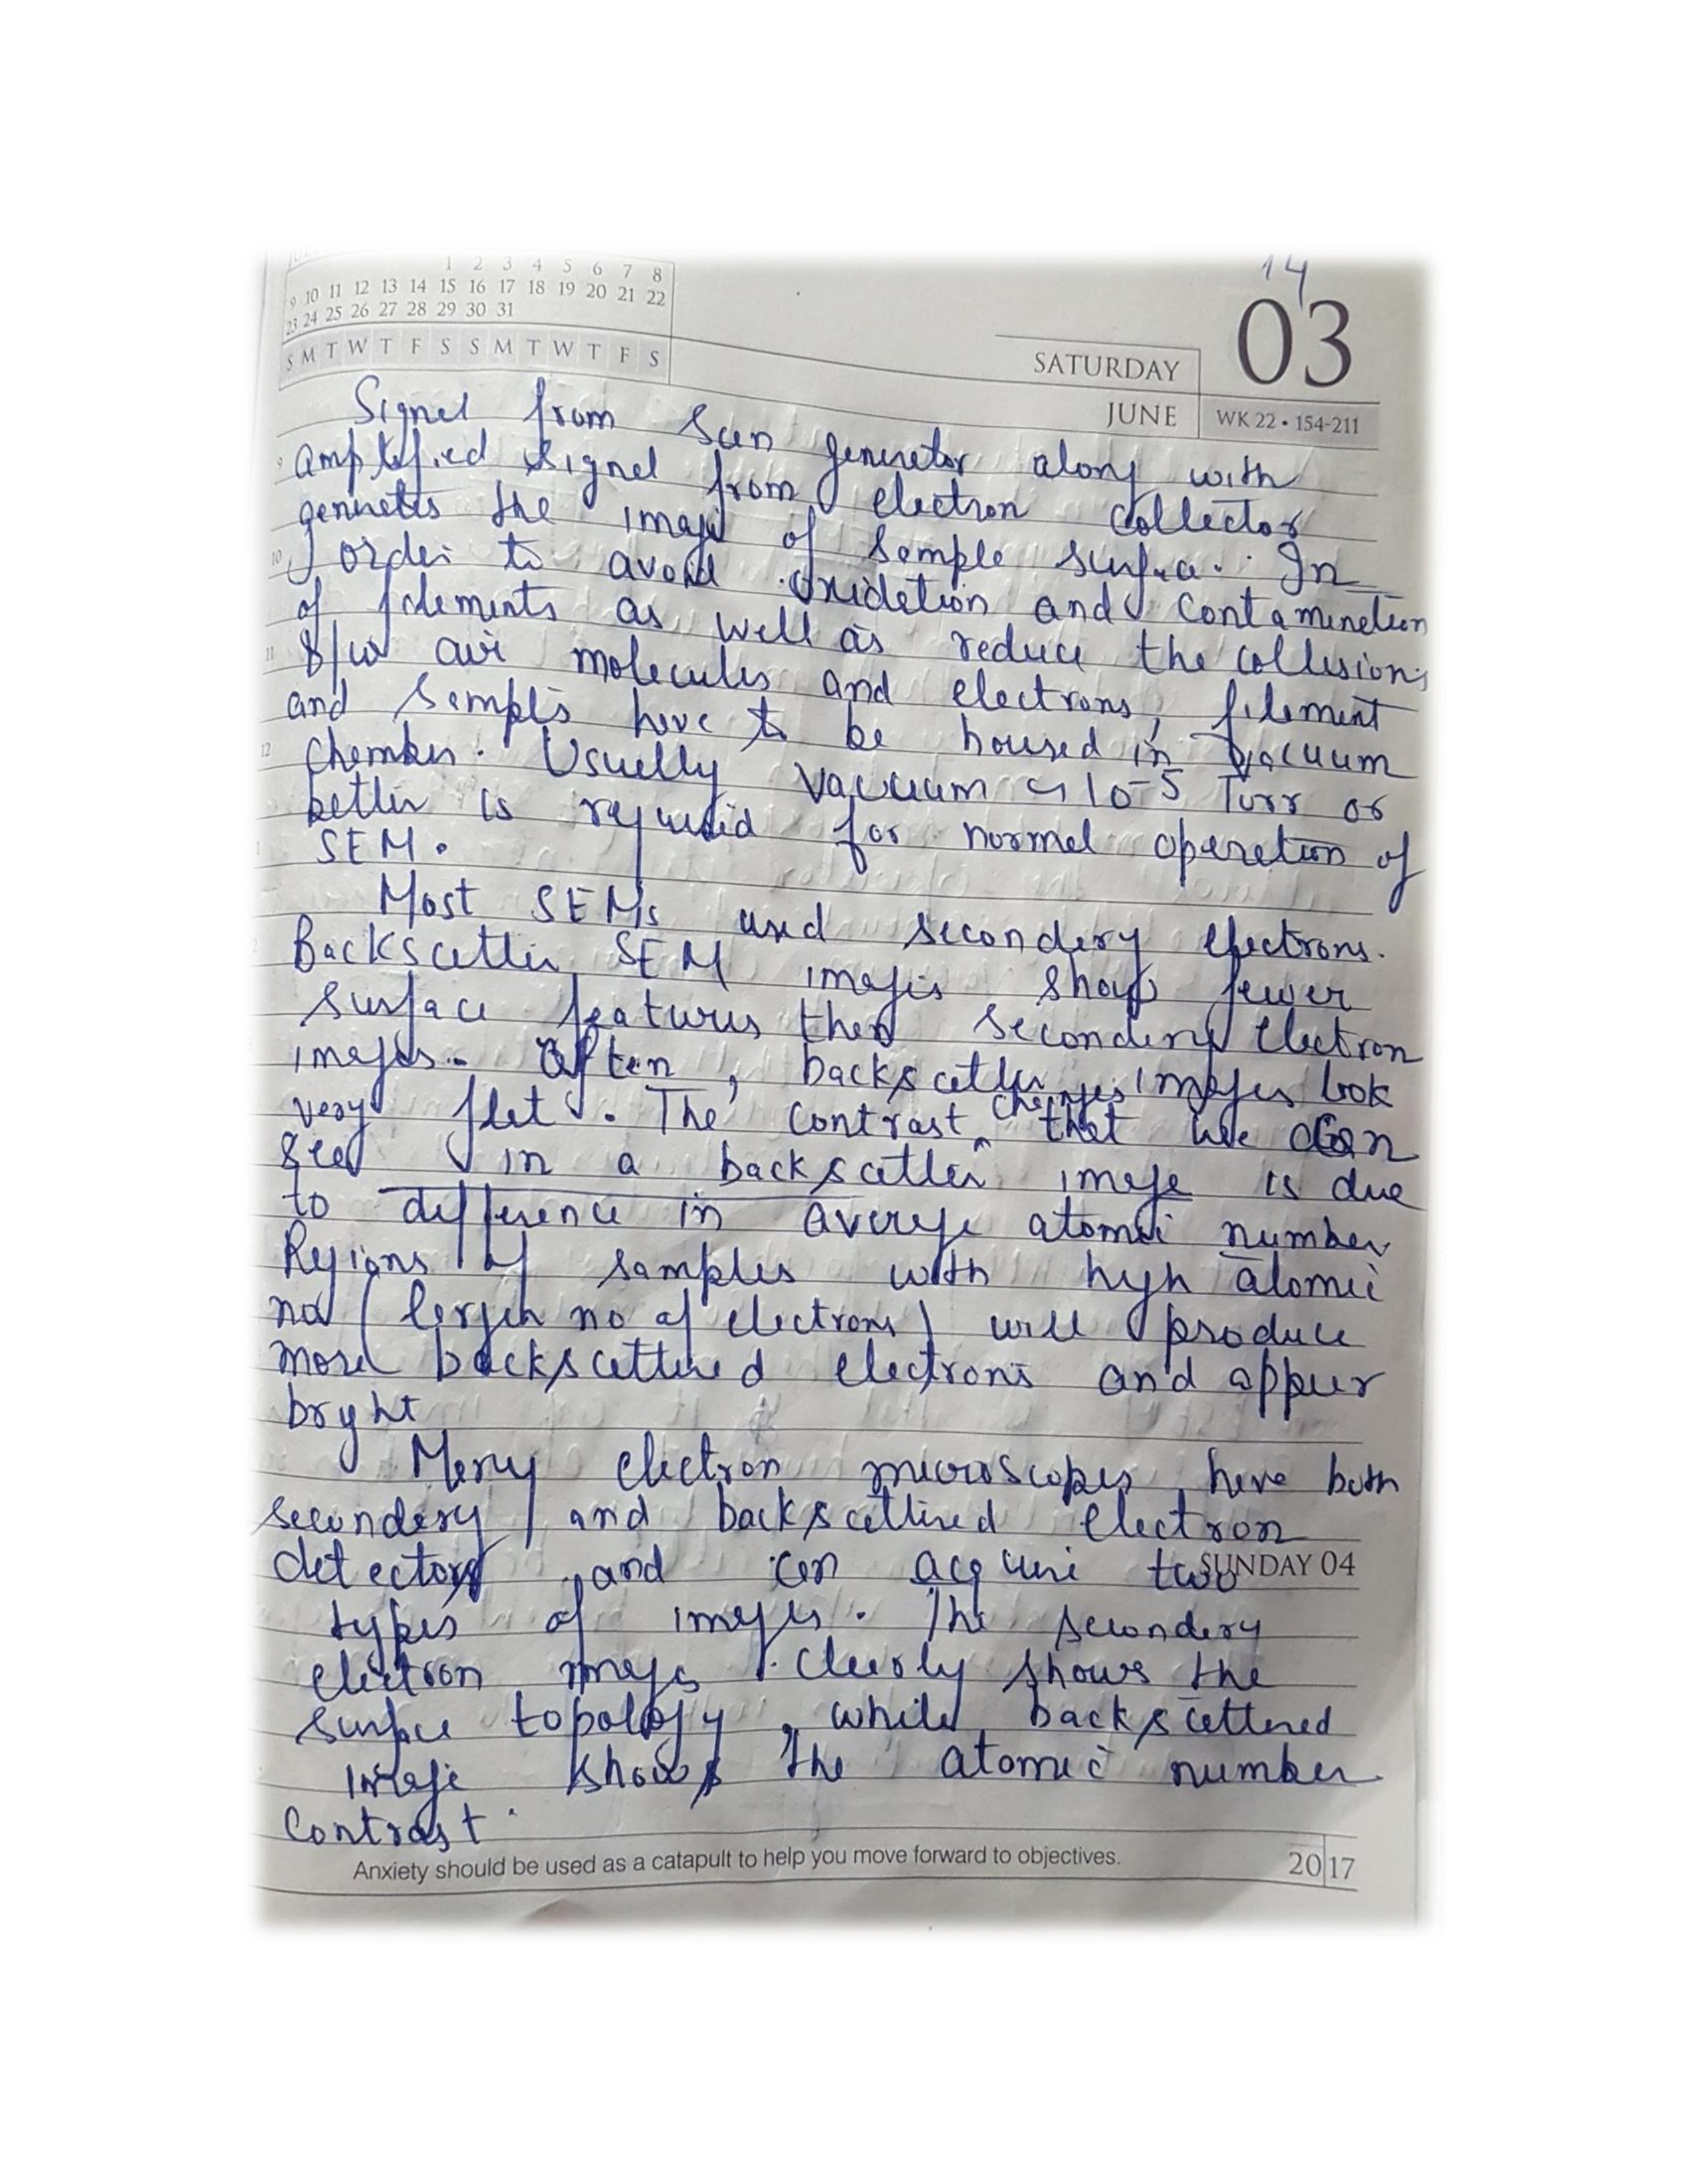 1 2 3 4 5 6 7 8
9 10 11 12 13 14 15 16 17 18 19 20 21 22
23 24 25 26 27 28 29 30 31
S M T W T F S S M T W T F S
14
03
SATURDAY
JUNE WK 22 • 154-211
Signal from scan generator along with
amplified signal from electron collector
generates the image of sample surface. In
order to avoid oxidation and contamination
of filements as well as reduce the collisions
b/w air molecules and electrons, filement
and samples have to be housed in vacuum
chamber. Usually vacuum ~ 10-5 Torr or
better is required for normal operation of
SEM.
Most SEMs used secondary electrons.
Backscatter SEM images show fewer
surface features then secondary electron
images. Often, backscatter images look
very flat. The contrast changes that we can
see in a backscatter image is due
to difference in average atomic number
Regions of samples with high atomic
no (larger no of electrons) will produce
more backscattered electrons and appear
bright
Many electron microscopes have both
secondary and backscattered electron
detectors and can acquire two
SUNDAY 04
types of images. The secondary
electron image clearly shows the
surface topology, while backscattered
image shows the atomic number
contrast.
Anxiety should be used as a catapult to help you move forward to objectives.
2017